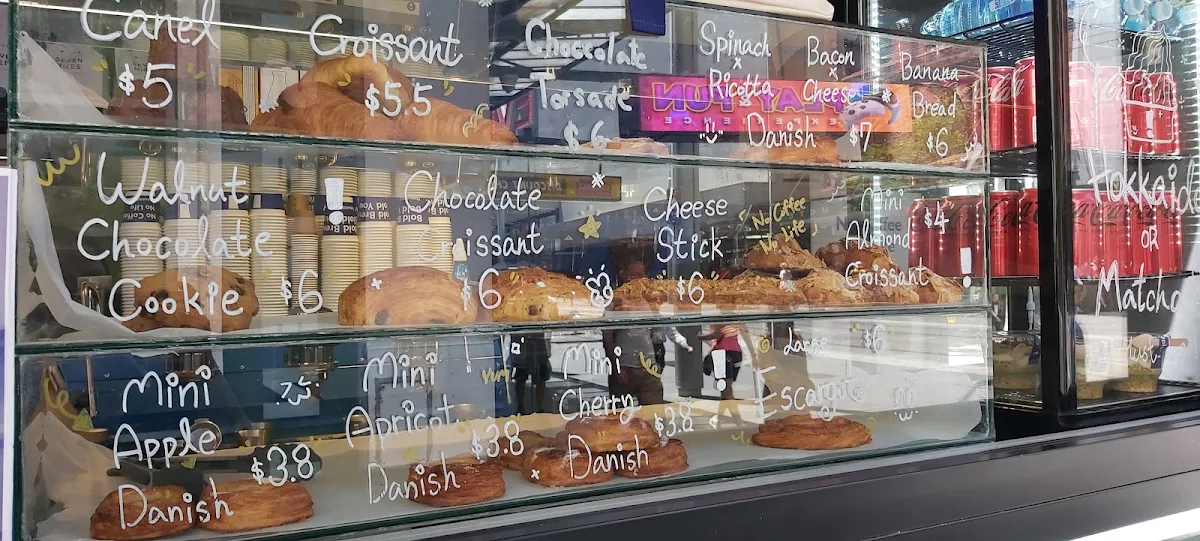 Canel
$5
Croissant
$5.5
Chocolate
Torsade
$6
Spinach
x
Ricotta
Danish
Bacon
x
Cheese
$7
Banana
Bread
$6
PLAY FUN
Walnut
Chocolate
Cookie
$6
Chocolate
Croissant
$6
Cheese
Stick
$6
No Coffee
No Life
Mini
Almond
Croissant
$4
Hokkaid
OR
Matcha
Mini
Apple
Danish
$3.8
Mini
Apricot
Danish
$3.8
yum!
Mini
Cherry
Danish
$3.8
Large
Escargot
$6